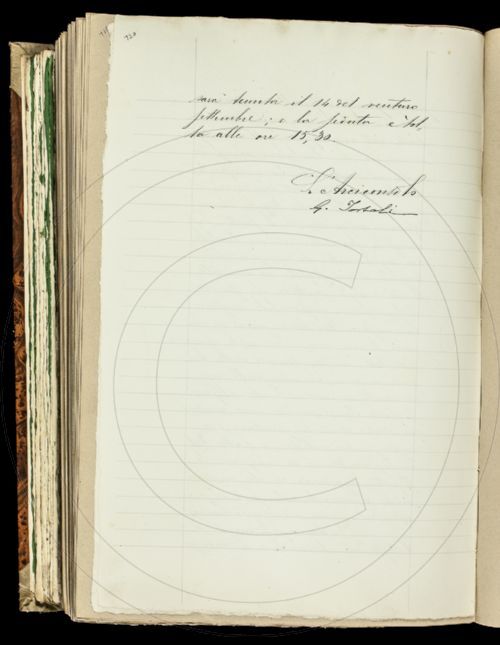 720
sarà tenuta il 14 del venturo
settembre; e la seduta è tol,
ta alle ore 15,30.
L'Arciconsolo
G. Tortoli